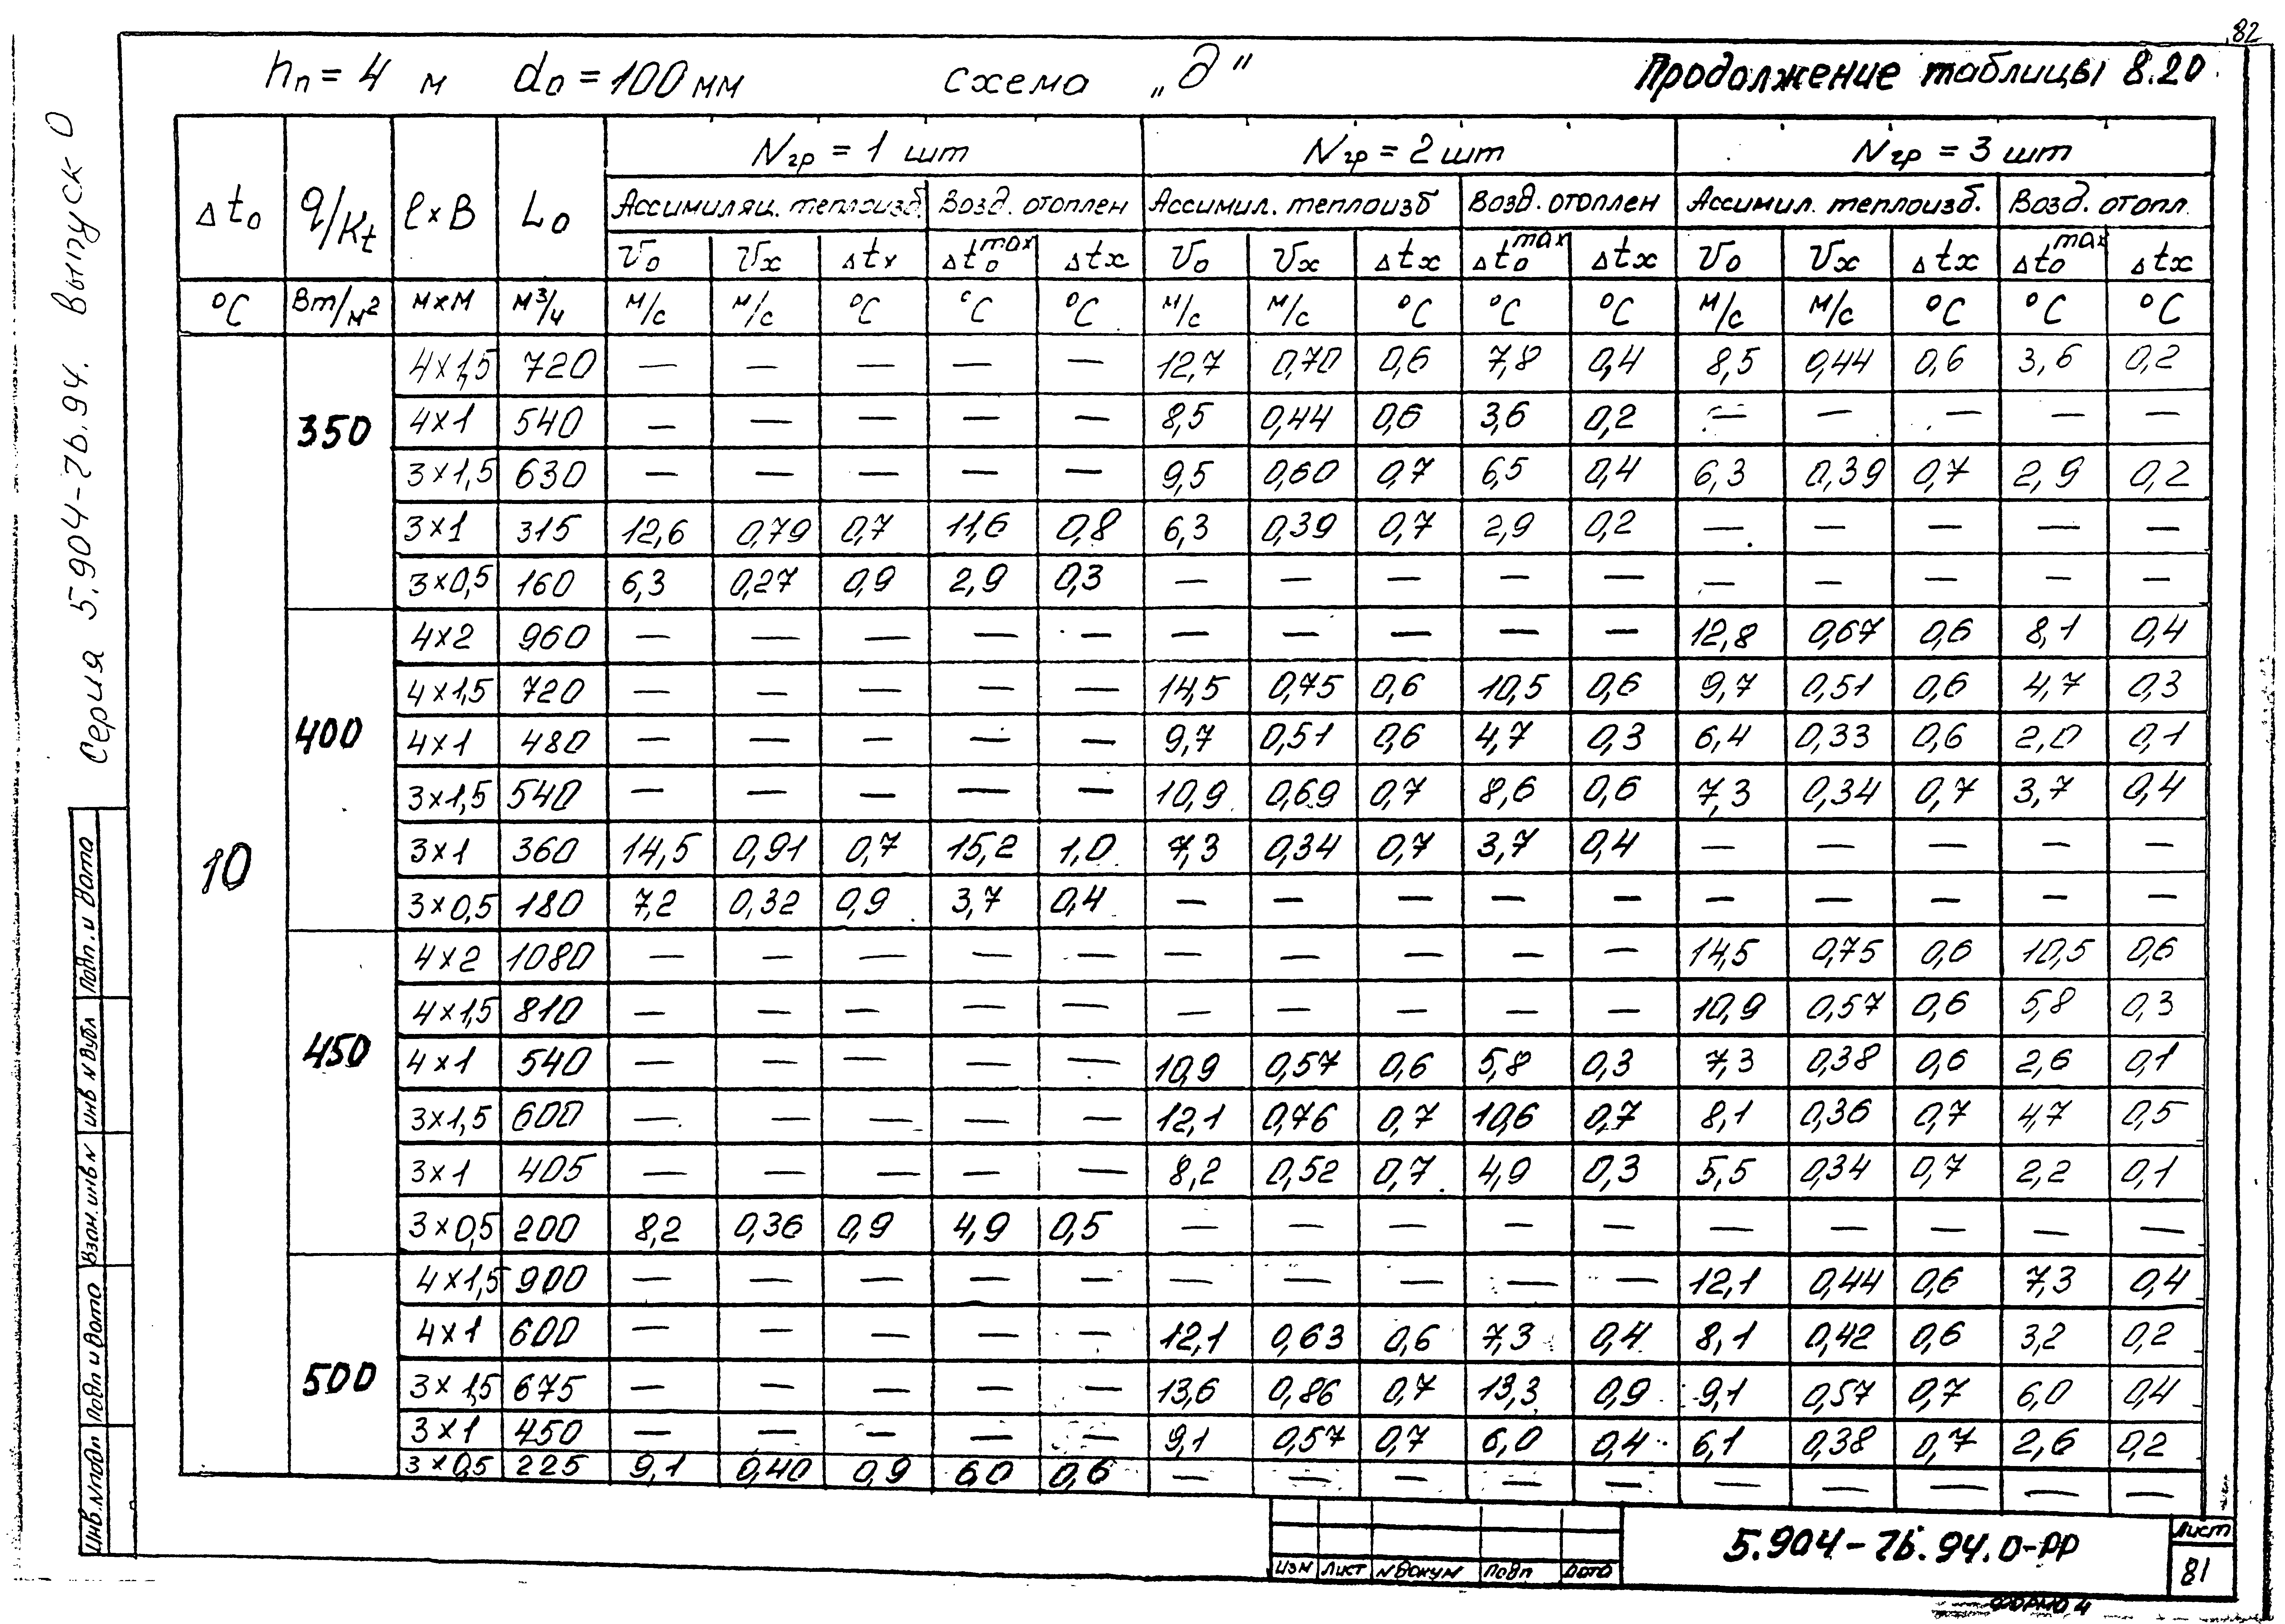 82
hп = 4 м   d₀ = 100 мм   схема „д"   Продолжение таблицы 8.20
Серия 5.904-76.94. Выпуск 0
Δt₀ | q/Kt | l×B | L₀ | Nгр = 1 шт | Nгр = 2 шт | Nгр = 3 шт
Ассимиляц. теплоизб. | Возд. отоплен | Ассимил. теплоизб | Возд. отоплен | Ассимил. теплоизб. | Возд. отопл.
V₀ | Vх | Δtх | Δt₀max | Δtх | V₀ | Vх | Δtх | Δt₀max | Δtх | V₀ | Vх | Δtх | Δt₀max | Δtх
°C | Вт/м² | м×м | м³/ч | м/с | м/с | °C | °C | °C | м/с | м/с | °C | °C | °C | м/с | м/с | °C | °C | °C
10
350
4×1,5 | 720 | — | — | — | — | — | 12,7 | 0,70 | 0,6 | 7,8 | 0,4 | 8,5 | 0,44 | 0,6 | 3,6 | 0,2
4×1 | 540 | — | — | — | — | — | 8,5 | 0,44 | 0,6 | 3,6 | 0,2 | — | — | — | — | —
3×1,5 | 630 | — | — | — | — | — | 9,5 | 0,60 | 0,7 | 6,5 | 0,4 | 6,3 | 0,39 | 0,7 | 2,9 | 0,2
3×1 | 315 | 12,6 | 0,79 | 0,7 | 11,6 | 0,8 | 6,3 | 0,39 | 0,7 | 2,9 | 0,2 | — | — | — | — | —
3×0,5 | 160 | 6,3 | 0,27 | 0,9 | 2,9 | 0,3 | — | — | — | — | — | — | — | — | — | —
400
4×2 | 960 | — | — | — | — | — | — | — | — | — | — | 12,8 | 0,67 | 0,6 | 8,1 | 0,4
4×1,5 | 720 | — | — | — | — | — | 14,5 | 0,75 | 0,6 | 10,5 | 0,6 | 9,7 | 0,51 | 0,6 | 4,7 | 0,3
4×1 | 480 | — | — | — | — | — | 9,7 | 0,51 | 0,6 | 4,7 | 0,3 | 6,4 | 0,33 | 0,6 | 2,0 | 0,1
3×1,5 | 540 | — | — | — | — | — | 10,9 | 0,69 | 0,7 | 8,6 | 0,6 | 7,3 | 0,34 | 0,7 | 3,7 | 0,4
3×1 | 360 | 14,5 | 0,91 | 0,7 | 15,2 | 1,0 | 7,3 | 0,34 | 0,7 | 3,7 | 0,4 | — | — | — | — | —
3×0,5 | 180 | 7,2 | 0,32 | 0,9 | 3,7 | 0,4 | — | — | — | — | — | — | — | — | — | —
450
4×2 | 1080 | — | — | — | — | — | — | — | — | — | — | 14,5 | 0,75 | 0,6 | 10,5 | 0,6
4×1,5 | 810 | — | — | — | — | — | — | — | — | — | — | 10,9 | 0,57 | 0,6 | 5,8 | 0,3
4×1 | 540 | — | — | — | — | — | 10,9 | 0,57 | 0,6 | 5,8 | 0,3 | 7,3 | 0,38 | 0,6 | 2,6 | 0,1
3×1,5 | 600 | — | — | — | — | — | 12,1 | 0,76 | 0,7 | 10,6 | 0,7 | 8,1 | 0,36 | 0,7 | 4,7 | 0,5
3×1 | 405 | — | — | — | — | — | 8,2 | 0,52 | 0,7 | 4,9 | 0,3 | 5,5 | 0,34 | 0,7 | 2,2 | 0,1
3×0,5 | 200 | 8,2 | 0,36 | 0,9 | 4,9 | 0,5 | — | — | — | — | — | — | — | — | — | —
500
4×1,5 | 900 | — | — | — | — | — | — | — | — | — | — | 12,1 | 0,44 | 0,6 | 7,3 | 0,4
4×1 | 600 | — | — | — | — | — | 12,1 | 0,63 | 0,6 | 7,3 | 0,4 | 8,1 | 0,42 | 0,6 | 3,2 | 0,2
3×1,5 | 675 | — | — | — | — | — | 13,6 | 0,86 | 0,7 | 13,3 | 0,9 | 9,1 | 0,57 | 0,7 | 6,0 | 0,4
3×1 | 450 | — | — | — | — | — | 9,1 | 0,57 | 0,7 | 6,0 | 0,4 | 6,1 | 0,38 | 0,7 | 2,6 | 0,2
3×0,5 | 225 | 9,1 | 0,40 | 0,9 | 6,0 | 0,6 | — | — | — | — | — | — | — | — | — | —
Подп. и дата
инв N дубл
Взам. инв N
Подп и дата
Инв. N подп
изм | лист | N докум | подп | дата
5.904-76.94.0-РР
Лист
81
Формат 4